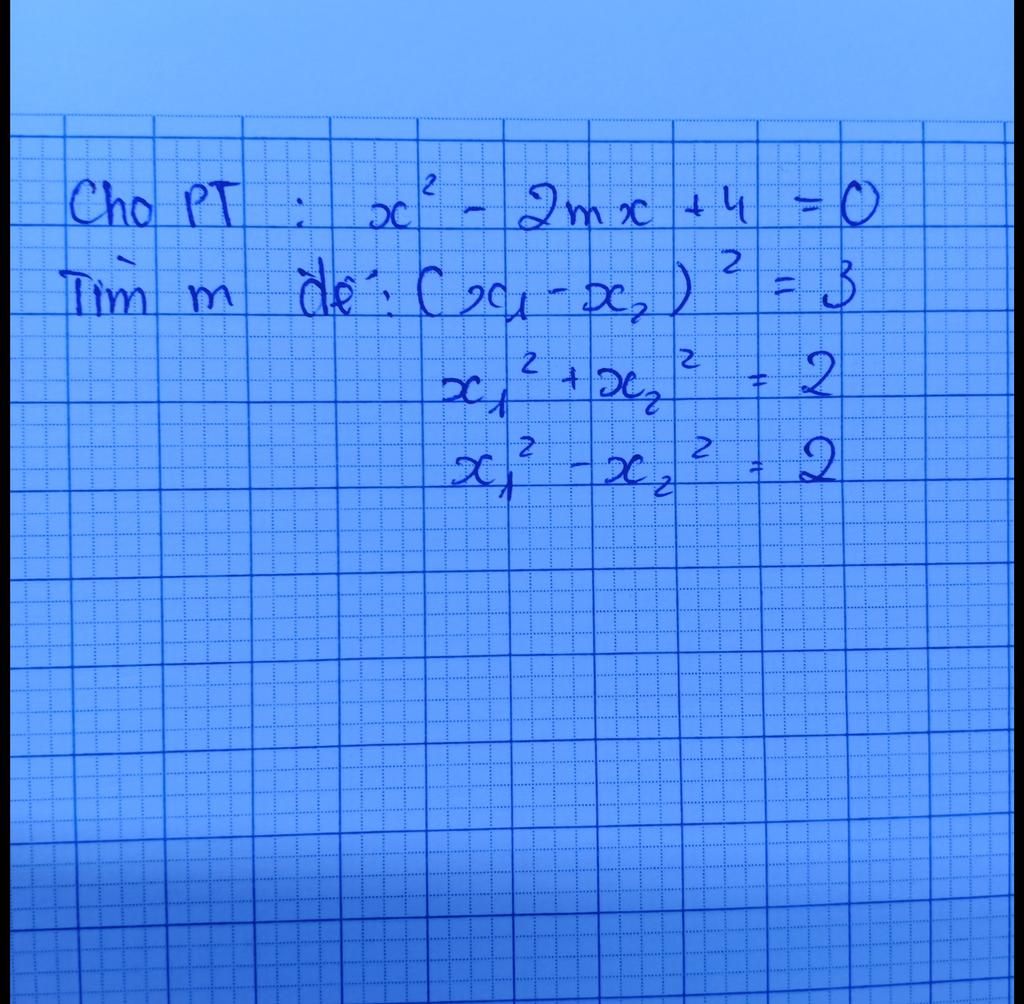 Cho PT : x² - 2mx + 4 = 0
Tìm m để : (x₁ - x₂)² = 3
x₁² + x₂² = 2
x₁² - x₂² = 2